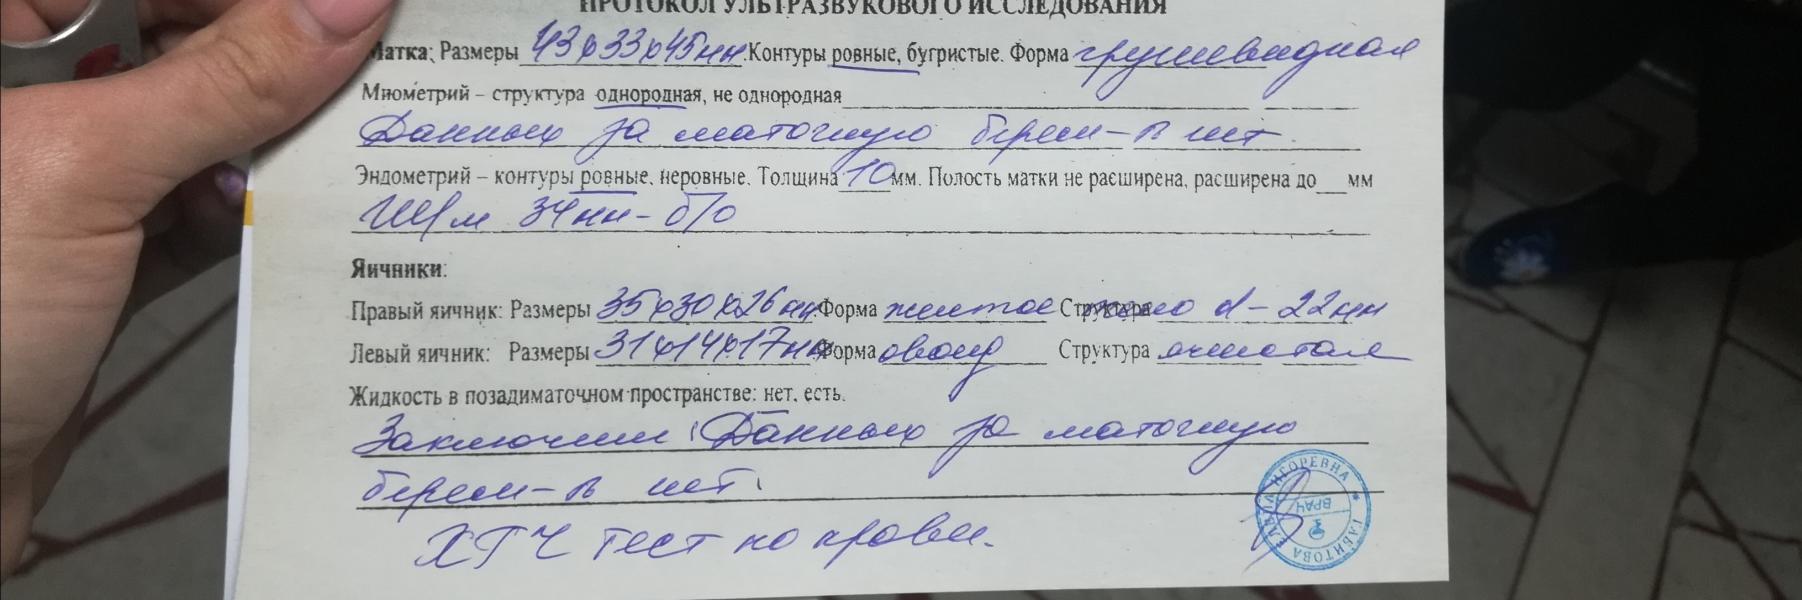 ПРОТОКОЛ УЛЬТРАЗВУКОВОГО ИССЛЕДОВАНИЯ
Матка: Размеры 43х33х45мм. Контуры ровные, бугристые. Форма грушевидная
Миометрий – структура однородная, не однородная
Данных за маточную берем-ть нет.
Эндометрий – контуры ровные, неровные. Толщина 10 мм. Полость матки не расширена, расширена до___мм
Ш/м 34мм - б/о
Яичники:
Правый яичник: Размеры 35х30х26мм Форма желтое Структура тело d - 22мм
Левый яичник: Размеры 31х14х17мм Форма овоид Структура ячистая
Жидкость в позадиматочном пространстве: нет, есть.
Заключение: Данных за маточную
берем-ть нет.
ХГЧ тест по крови.
ИГОРЕВНА * ГАБИТОВА
ВРАЧ